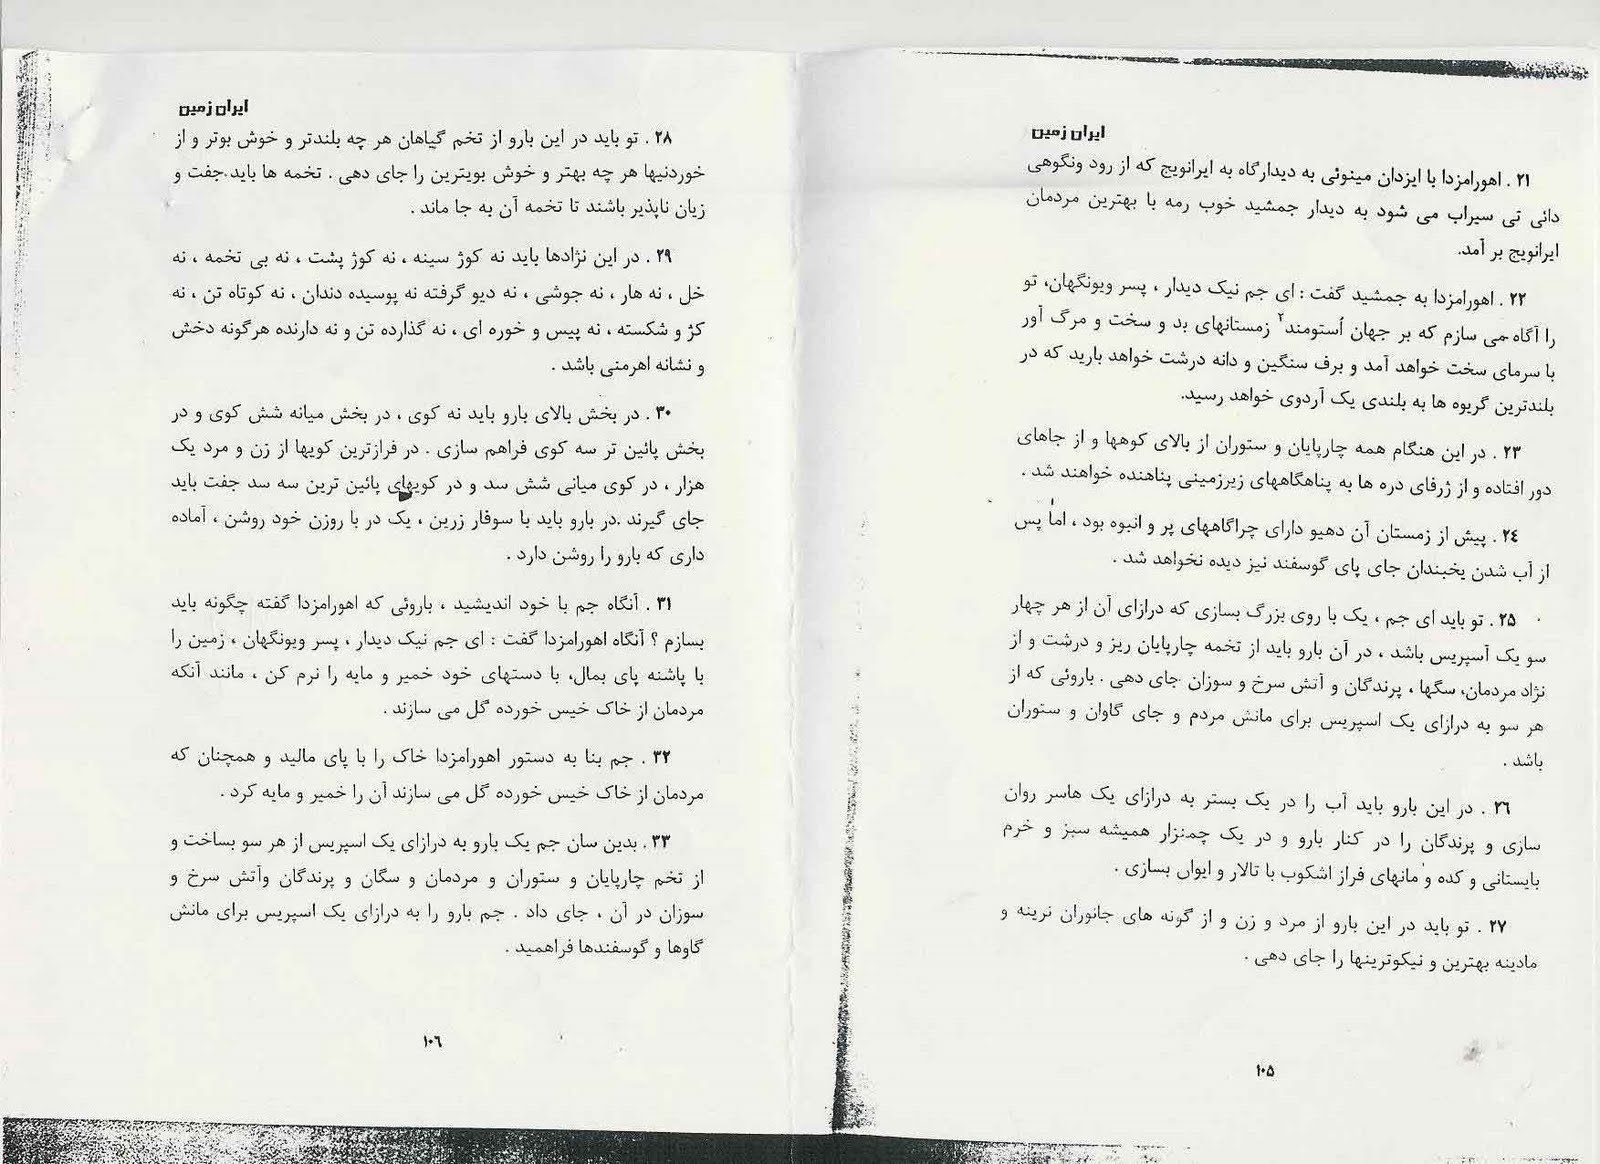 ایران زمین
۲۱ . اهورامزدا با ایزدان مینوئی به دیدارگاه به ایرانویج که از رود ونگوهی
دائی تی سیراب می شود به دیدار جمشید خوب رمه با بهترین مردمان
ایرانویج بر آمد.
۲۲ . اهورامزدا به جمشید گفت : ای جم نیک دیدار ، پسر ویونگهان، تو
را آگاه می سازم که بر جهان اُستومند۲ زمستانهای بد و سخت و مرگ آور
با سرمای سخت خواهد آمد و برف سنگین و دانه درشت خواهد بارید که در
بلندترین گریوه ها به بلندی یک آردوی خواهد رسید.
۲۳ . در این هنگام همه چارپایان و ستوران از بالای کوهها و از جاهای
دور افتاده و از ژرفای دره ها به پناهگاههای زیرزمینی پناهنده خواهند شد .
۲٤ . پیش از زمستان آن دهیو دارای چراگاههای پر و انبوه بود ، اما پس
از آب شدن یخبندان جای پای گوسفند نیز دیده نخواهد شد .
۲۵ . تو باید ای جم ، یک با روی بزرگ بسازی که درازای آن از هر چهار
سو یک آسپریس باشد ، در آن بارو باید از تخمه چارپایان ریز و درشت و از
نژاد مردمان، سگها ، پرندگان و آتش سرخ و سوزان جای دهی . باروئی که از
هر سو به درازای یک اسپریس برای مانش مردم و جای گاوان و ستوران
باشد .
۲٦ . در این بارو باید آب را در یک بستر به درازای یک هاسر روان
سازی و پرندگان را در کنار بارو و در یک چمنزار همیشه سبز و خرم
بایستانی و کده و مانهای فراز اشکوب با تالار و ایوان بسازی .
۲۷ . تو باید در این بارو از مرد و زن و از گونه های جانوران نرینه و
مادینه بهترین و نیکوترینها را جای دهی .
۱۰۵
ایران زمین
۲۸ . تو باید در این بارو از تخم گیاهان هر چه بلندتر و خوش بوتر و از
خوردنیها هر چه بهتر و خوش بویترین را جای دهی . تخمه ها باید جفت و
زیان ناپذیر باشند تا تخمه آن به جا ماند .
۲۹ . در این نژادها باید نه کوژ سینه ، نه کوژ پشت ، نه بی تخمه ، نه
خل ، نه هار ، نه جوشی ، نه دیو گرفته نه پوسیده دندان ، نه کوتاه تن ، نه
کژ و شکسته ، نه پیس و خوره ای ، نه گذارده تن و نه دارنده هرگونه دخش
و نشانه اهرمنی باشد .
۳۰ . در بخش بالای بارو باید نه کوی ، در بخش میانه شش کوی و در
بخش پائین تر سه کوی فراهم سازی . در فرازترین کویها از زن و مرد یک
هزار ، در کوی میانی شش سد و در کویهای پائین ترین سه سد جفت باید
جای گیرند .در بارو باید با سوفار زرین ، یک در با روزن خود روشن ، آماده
داری که بارو را روشن دارد .
۳۱ . آنگاه جم با خود اندیشید ، باروئی که اهورامزدا گفته چگونه باید
بسازم ؟ آنگاه اهورامزدا گفت : ای جم نیک دیدار ، پسر ویونگهان ، زمین را
با پاشنه پای بمال، با دستهای خود خمیر و مایه را نرم کن ، مانند آنکه
مردمان از خاک خیس خورده گل می سازند .
۳۲ . جم بنا به دستور اهورامزدا خاک را با پای مالید و همچنان که
مردمان از خاک خیس خورده گل می سازند آن را خمیر و مایه کرد .
۳۳ . بدین سان جم یک بارو به درازای یک اسپریس از هر سو بساخت و
از تخم چارپایان و ستوران و مردمان و سگان و پرندگان وآتش سرخ و
سوزان در آن ، جای داد . جم بارو را به درازای یک اسپریس برای مانش
گاوها و گوسفندها فراهمید .
۱۰٦